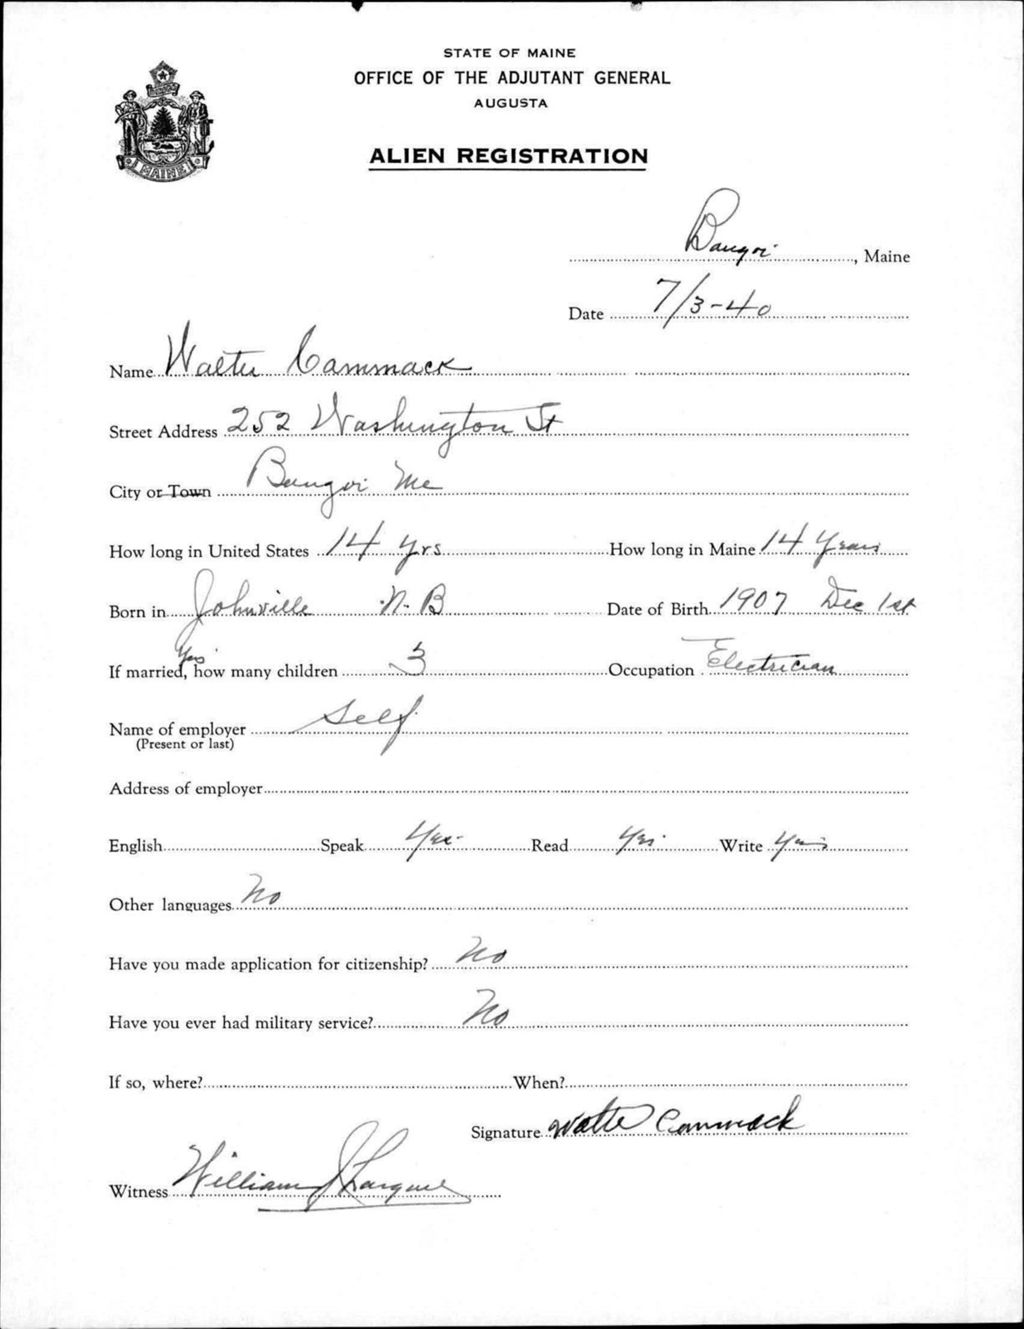 STATE OF MAINE
OFFICE OF THE ADJUTANT GENERAL
AUGUSTA
ALIEN REGISTRATION
MAINE
Bangor, Maine
Date 7/3-40
Name Walter Cammack
Street Address 252 Washington St
City or Town Bangor Me
How long in United States 14 yrs How long in Maine 14 Years
Born in Johnville N.B Date of Birth 1907 Dec 1st
Yes
If married, how many children 3 Occupation Electrician
Name of employer Self
(Present or last)
Address of employer
English Speak Yes Read Yes Write Yes
Other languages No
Have you made application for citizenship? No
Have you ever had military service? No
If so, where? When?
Signature Walter Cammack
Witness William J